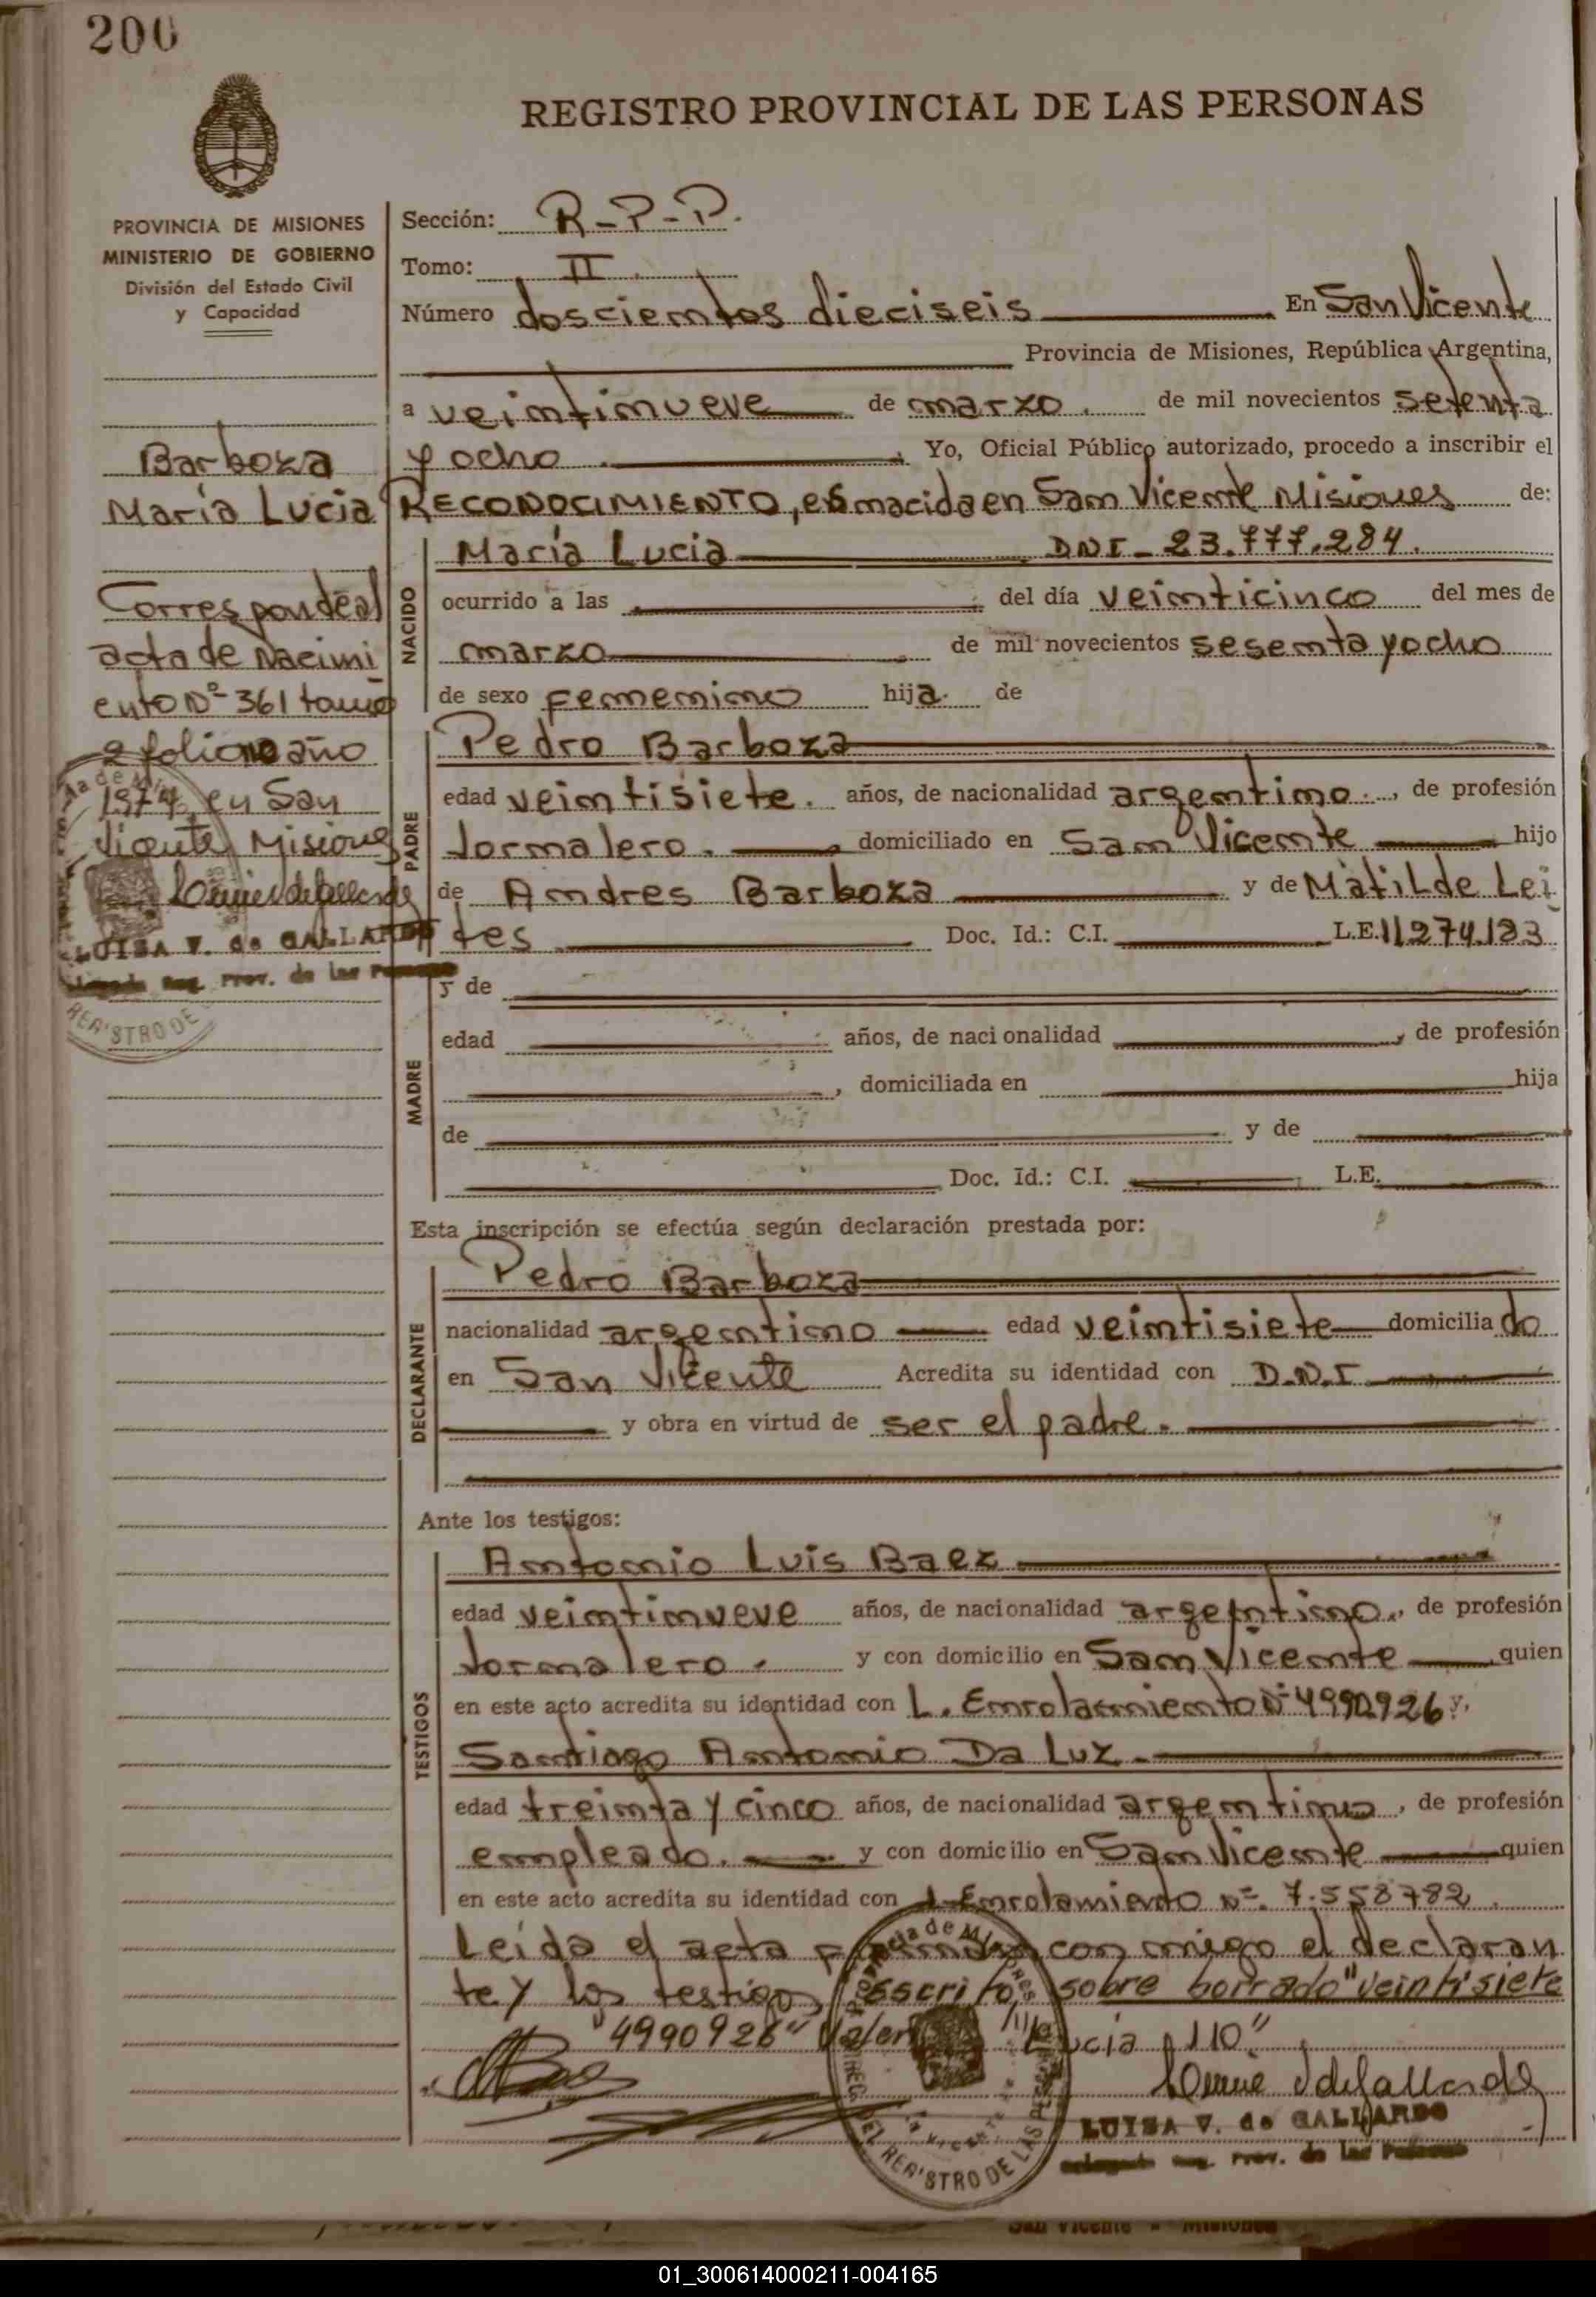 200
REGISTRO PROVINCIAL DE LAS PERSONAS
PROVINCIA DE MISIONES
MINISTERIO DE GOBIERNO
División del Estado Civil
y Capacidad
Barboza
María Lucia
Correspondeal
acta de Nacimi
ento Nº 361 tomo
2 folio 110 año
1974, en San
Vicente Misiones
LUISA V. de GALLARDO
Reg. Prov. de las Personas
REGISTRO DE
Sección: R-P-P.
Tomo: II.
Número doscientos dieciseis En San Vicente
Provincia de Misiones, República Argentina,
a veintinueve de marzo. de mil novecientos setenta
y ocho. Yo, Oficial Público autorizado, procedo a inscribir el
RECONOCIMIENTO, es nacida en San Vicente Misiones de:
NACIDO
María Lucia DNI-23.777.284.
ocurrido a las del día veinticinco del mes de
marzo de mil novecientos sesenta y ocho
de sexo femenino hija. de
PADRE
Pedro Barboza
edad veintisiete. años, de nacionalidad argentino., de profesión
Jornalero. domiciliado en San Vicente hijo
de Andres Barboza y de Matilde Lei
tes Doc. Id.: C.I. L.E. 11274.123
MADRE
y de
edad años, de nacionalidad , de profesión
, domiciliada en hija
de y de
Doc. Id.: C.I. L.E.
Esta inscripción se efectúa según declaración prestada por:
DECLARANTE
Pedro Barboza
nacionalidad argentino edad veintisiete domiciliado
en San Vicente Acredita su identidad con D.N.I
y obra en virtud de ser el padre.
Ante los testigos:
TESTIGOS
Antonio Luis Baez
edad veintinueve años, de nacionalidad argentino., de profesión
Jornalero. y con domicilio en San Vicente quien
en este acto acredita su identidad con L. Enrolamiento Nº 4990926 y,
Santiago Antonio Da Luz.
edad treinta y cinco años, de nacionalidad argentino, de profesión
empleado. y con domicilio en San Vicente quien
en este acto acredita su identidad con L Enrolamiento Nº. 7.558782.
Leida el acta conmigo el declaran
te y los testigos, escrito sobre borrado "veintisiete
"4990926" Lucia 110"
LUISA V. de GALLARDO
Reg. Prov. de las Personas
REGISTRO DE LAS
San Vicente - Misiones
01_300614000211-004165